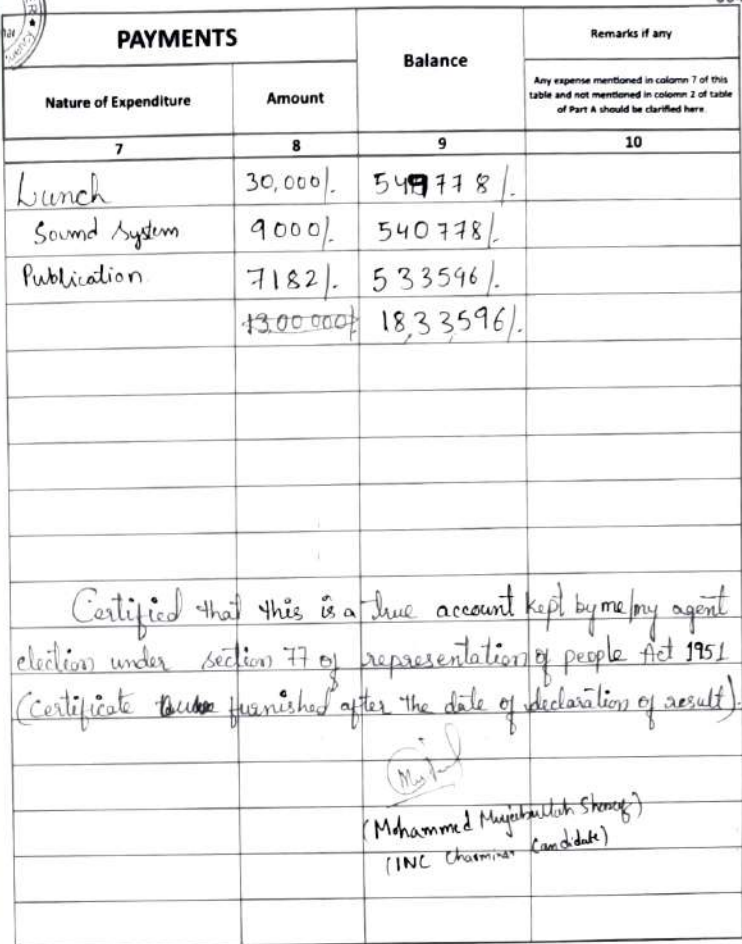 PAYMENTS
Balance
Remarks if any
Nature of Expenditure
Amount
Any expense mentioned in colomn 7 of this
table and not mentioned in colomn 2 of table
of Part A should be clarified here.
7 8 9 10
Lunch 30,000/. 549778/.
Sound System 9000/. 540778/.
Publication 7182/. 533596/.
13,00 000/ 18,33596/.
Certified that this is a true account kept by me/my agent
election under section 77 of representation of people Act 1951
(Certificate furnished after the date of declaration of result).
(Mohammed Mujeebullah Shareef)
(INC Charminar Candidate)